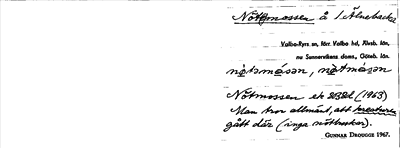 Nötmossen å 1 Älnebacka
Valbo-Ryrs sn, förr Valbo hd, Älvsb. län,
nu Sunnervikens doms, Göteb. län.
nø̀tmåsən, nø̀tmåsən
Nötmossen ek (1963)
Man tror allmänt, att kreaturen
gått där (inga nötbuskar).
GUNNAR DROUGGE 1967.